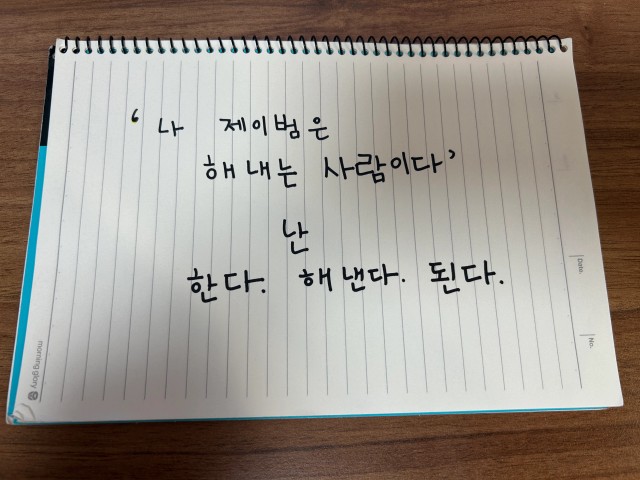 ‘나 제이범은
해내는 사람이다’
난
한다. 해낸다. 된다.
Date.
No.
morning glory